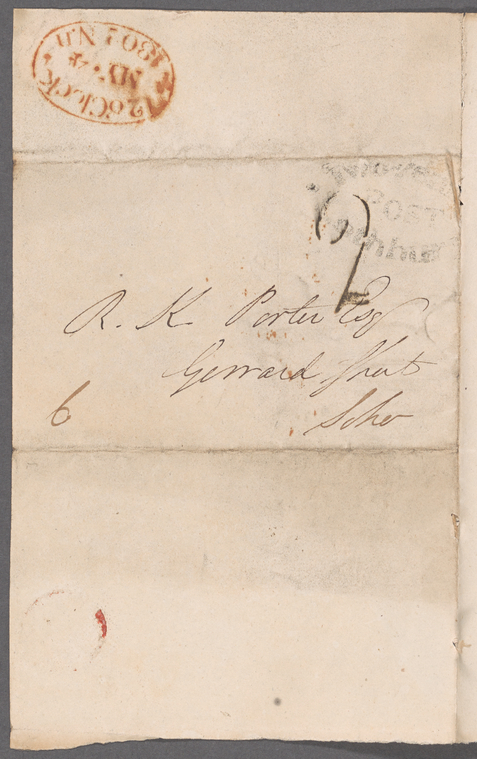 2 o'Clock
MY. 4
180 NN
POST
2
R. K. Porter Esq
Gerrard Street
Soho
6